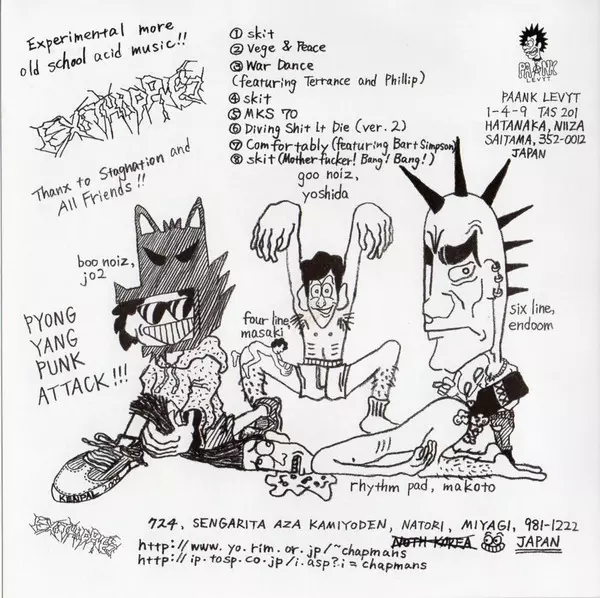 Experimental more
old school acid music!!
① skit
② Vege & Peace
③ War Dance
(featuring Terrance and Phillip)
④ skit
⑤ MKS 70
⑥ Diving Shit It Die (ver. 2)
⑦ Comfortably (featuring Bart Simpson)
⑧ skit (Mother fucker! Bang! Bang!)
PAANK
LEVYT
PAANK LEVYT
1-4-9 TAS 201
HATANAKA, NIIZA
SAITAMA, 352-0012
JAPAN
Thanx to Stagnation and
All Friends!!
goo noiz,
yoshida
boo noiz,
jo2
four line
masaki
six line,
endoom
PYONG
YANG
PUNK
ATTACK!!!
rhythm pad, makoto
724, SENGARITA AZA KAMIYODEN, NATORI, MIYAGI, 981-1222
NOTH KOREA JAPAN
http://www.yo.rim.or.jp/~chapmans
http://ip.tosp.co.jp/i.asp?i=chapmans